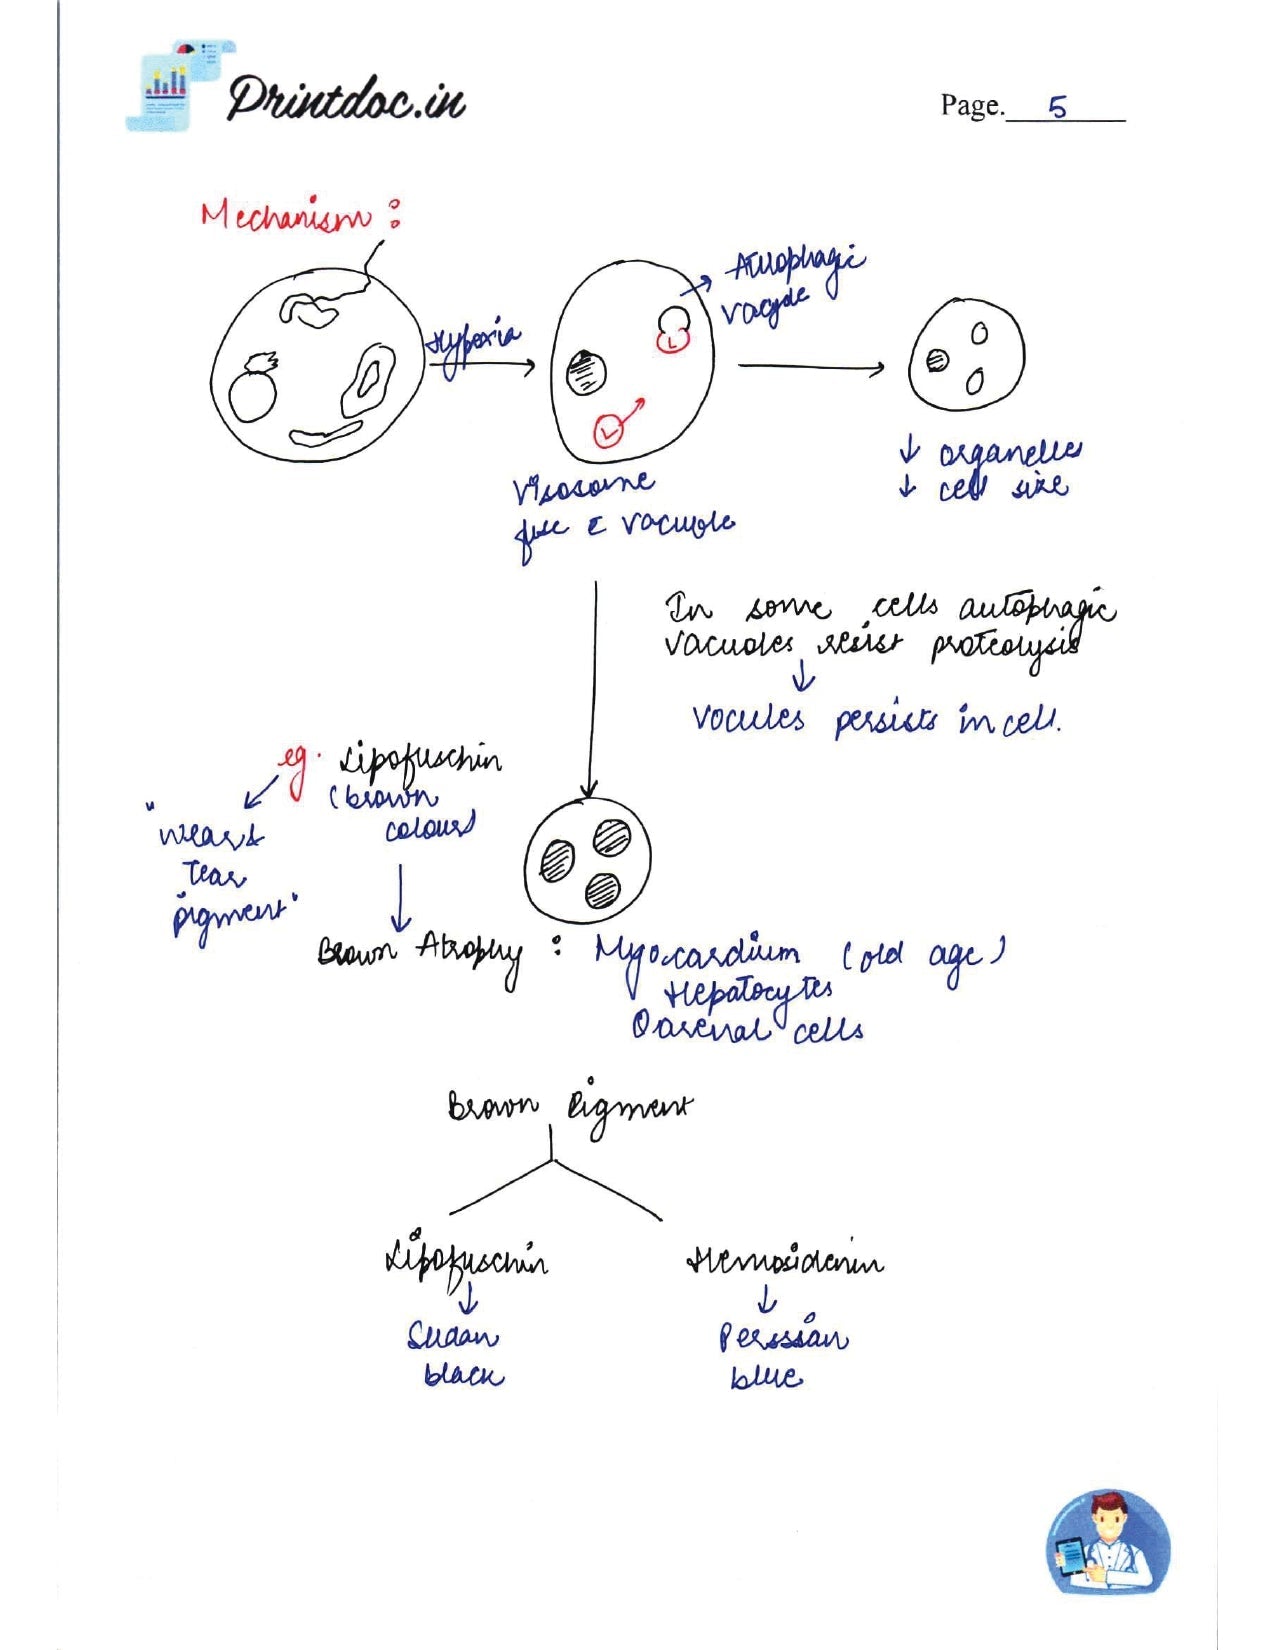 Printdoc.in
Page. 5
Mechanism :
Hypoxia
Autophagic
vacuole
L
L
↓ organelles
↓ cell size
fuse c̄ vacuole
In some cells autophagic
vacuoles resist proteolysis
↓
Vocules persists in cell.
eg. Lipofuschin
(brown
colour)
"wear &
tear
pigment"
Brown Atrophy : Myocardium (old age)
Hepatocytes
cells
Brown Pigment
Lipofuschin
↓
Sudan
black
Hemosiderin
↓
Perssian
blue